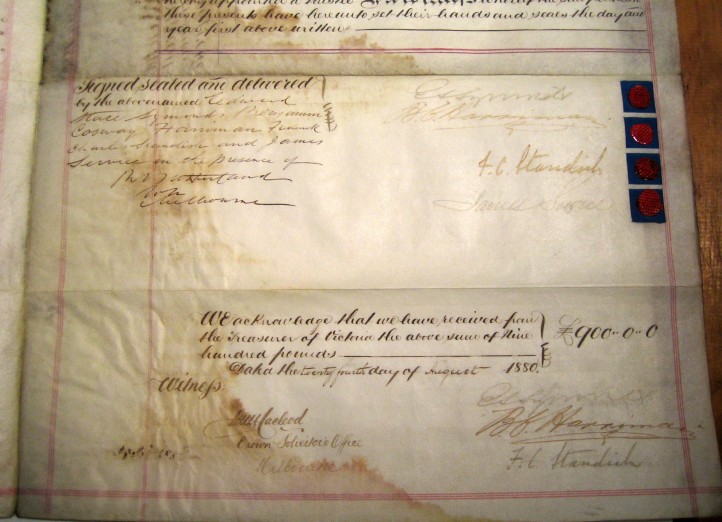 these presents have hereunto set their hands and seals the day and
year first above written
Signed sealed and delivered
by the abovenamed Edward
Symonds Benjamin
Cosway Harriman Frank
Charles Standish and James
Service in the presence of
Sutherland
Melbourne
B C Harriman
F. C. Standish
James Service
We acknowledge that we have received from
the Treasurer of Victoria the above sum of Nine
hundred pounds
£900.. 0.. 0
Dated the twenty fourth day of August 1880.
Witness
Macleod
Crown Solicitor's Office
Melbourne
B. C. Harriman
F. C. Standish